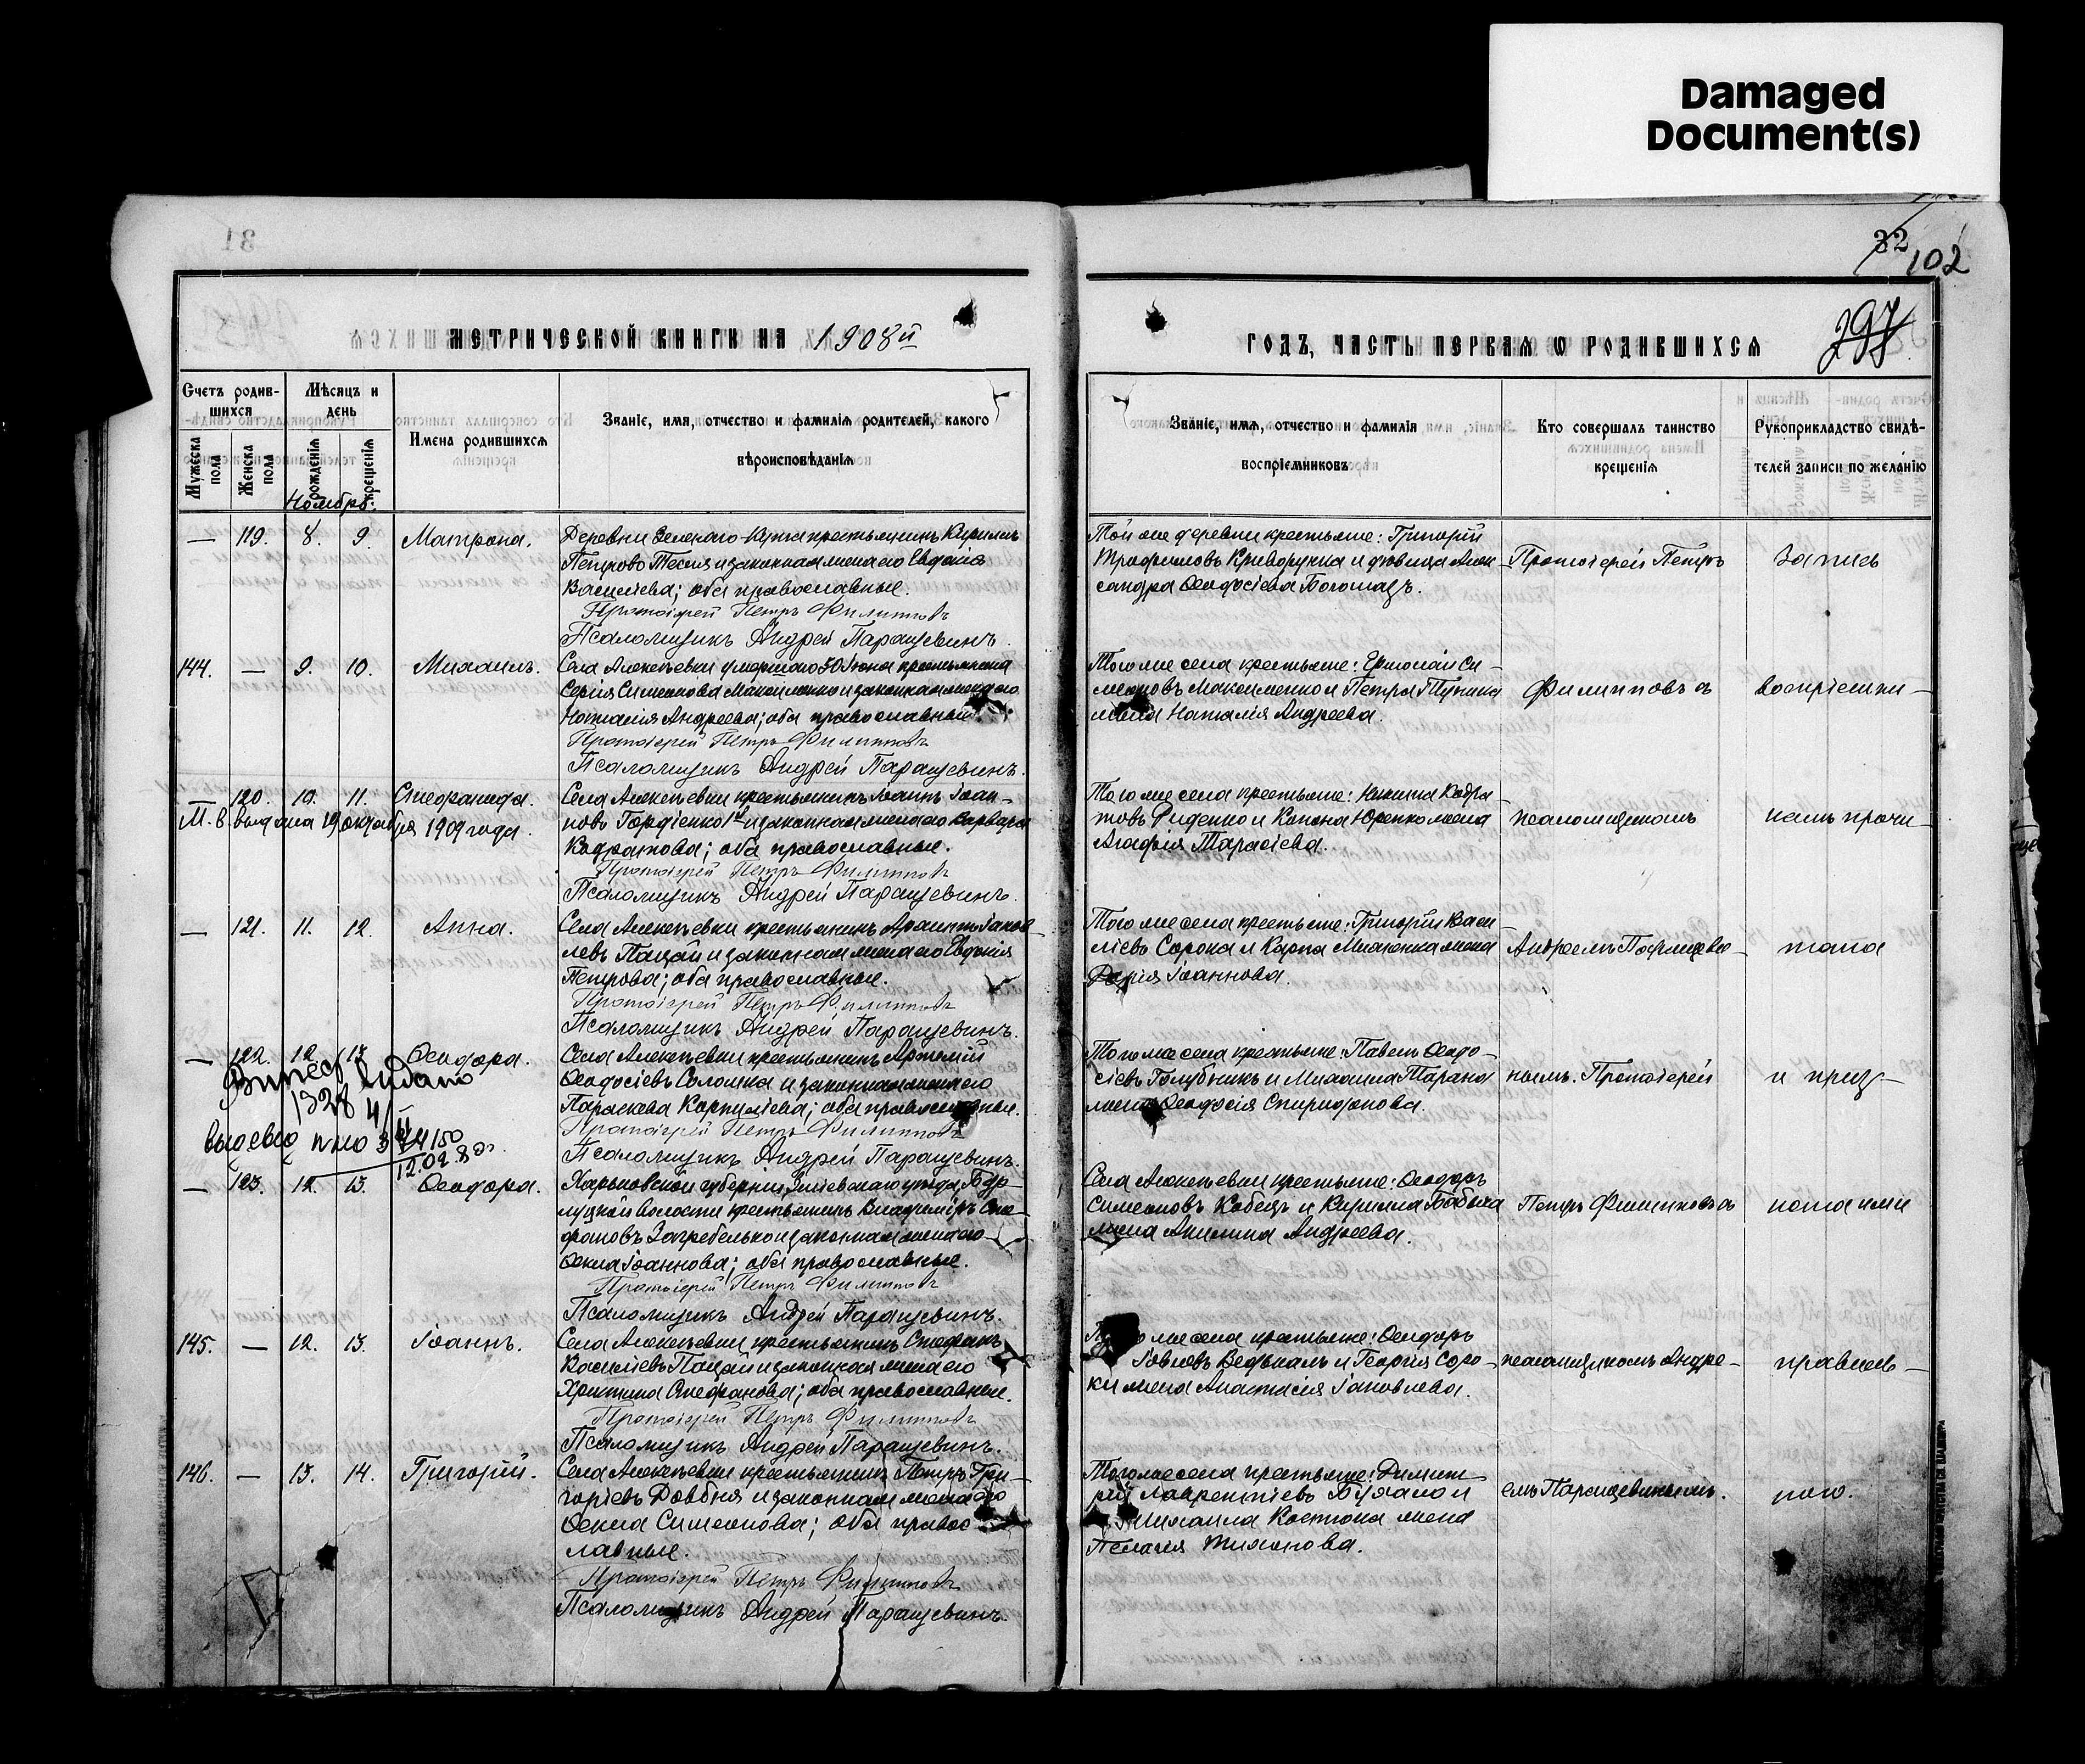 Damaged
Document(s)
31
32
102
МЕТРИЧЕСКОЙ КНИГИ НА 1908й
Счетъ родив-
шихся
Мѣсяцъ и
день
Имена родившихся
Званіе, имя, отчество и фамилія родителей, какого
вѣроисповѣданія
Мужеска
пола
Женска
пола
рожденія
крещенія
Ноябрь.
— 119. 8. 9. Матрона.
Деревни Зеленаго-Кута крестьянинъ Кириллъ
Петровъ и законная жена его Евдокія
Василіева; оба православные.
Протоіерей Петръ Филипповъ
Псаломщикъ Андрей Паращевинъ.
144. — 9. 10. Михаилъ.
Села Алексѣевки умершаго 30 Іюня крестьянина
Сергія Симеонова Максименко и законная жена его
Наталія Андреева; оба православные.
Протоіерей Петръ Филипповъ
Псаломщикъ Андрей Паращевинъ.
— 120. 10. 11. Стефанида.
М. В. выдана 19 октября 1909 года.
Села Алексѣевки крестьянинъ Іоаннъ Іоан-
новъ Гордіенко 1й и законная жена его Варвара
Кодратова; оба православные.
Протоіерей Петръ Филипповъ
Псаломщикъ Андрей Паращевинъ.
— 121. 11. 12. Анна.
Села Алексѣевки крестьянинъ Іаков-
левъ Пацай и законная жена его Евдокія
Петрова; оба православные.
Протоіерей Петръ Филипповъ
Псаломщикъ Андрей Паращевинъ.
— 122. 12. 13. Ѳеодора.
видано
1328
Села Алексѣевки крестьянинъ Артемій
Ѳеодосіевъ Солошка и законная жена его
Параскева Корниліева; оба православные.
Протоіерей Петръ Филипповъ
Псаломщикъ Андрей Паращевинъ.
— 123. 12. 13. Ѳеодора.
Харьковской губерніи Зміевскаго уѣзда,
волости крестьянинъ Владиміръ Сте-
фановъ Загребелько и законная жена его
Ѳекла Іоаннова; оба православные.
Протоіерей Петръ Филипповъ
Псаломщикъ Андрей Паращевинъ.
145. — 12. 13. Іоаннъ.
Села Алексѣевки крестьянинъ Стефанъ
Василіевъ Пацай и законная жена его
Христина Стефанова; оба православные.
Протоіерей Петръ Филипповъ
Псаломщикъ Андрей Паращевинъ.
146. — 13. 14. Григорій.
Села Алексѣевки крестьянинъ Петръ Гри-
горіевъ Довбня и законная жена его
Ѳекла Симеонова; оба правос-
лавные.
Протоіерей Петръ Филипповъ
Псаломщикъ Андрей Паращевинъ.
ГОДЪ, ЧАСТЬ ПЕРВАЯ Ѡ РОДИВШИХСЯ
297
Званіе, имя, отчество и фамилія
воспріемниковъ
Кто совершалъ таинство
крещенія
Рукоприкладство свидѣ-
телей записи по желанію
Той же деревни крестьяне: Григорій
Трофимовъ Криворучка и дѣвица Алек-
сандра Ѳеодосіева Богомазъ.
Протоіерей Петръ
Запись
Того же села крестьяне: Си-
меоновъ Максименко и Петра Тупика
жена Наталія Андреева.
Филипповъ съ
воспріемни-
Того же села крестьяне: Никита Кодра-
товъ Диденко и Конона Юренко жена
Агафія Тарасіева.
псаломщикомъ
комъ прочи-
Того же села крестьяне: Григорій Васи-
ліевъ Сорока и Карпа Михненка жена
Марія Іоаннова.
Андреемъ Паращеви-
тана
Того же села крестьяне: Павелъ Ѳеодо-
сіевъ Голубникъ и Михаила Тарана
жена Ѳеодосія Спиридонова.
нымъ. Протоіерей
и приз-
Села Алексѣевки крестьяне: Ѳеодоръ
Симеоновъ Кобецъ и Кирилла Бабыча
жена Акилина Андреева.
Петръ Филипповъ съ
ната ими
Того же села крестьяне: Ѳеодоръ
Іовлевъ Ведькалъ и Георгія Соро-
ки жена Анастасія Іаковлева.
псаломщикомъ Андре-
правиль-
Того же села крестьяне: Димит-
рій Лаврентіевъ Бухало и
Михаила Костюка жена
Пелагія Тихонова.
емъ Паращевинымъ.
ною.